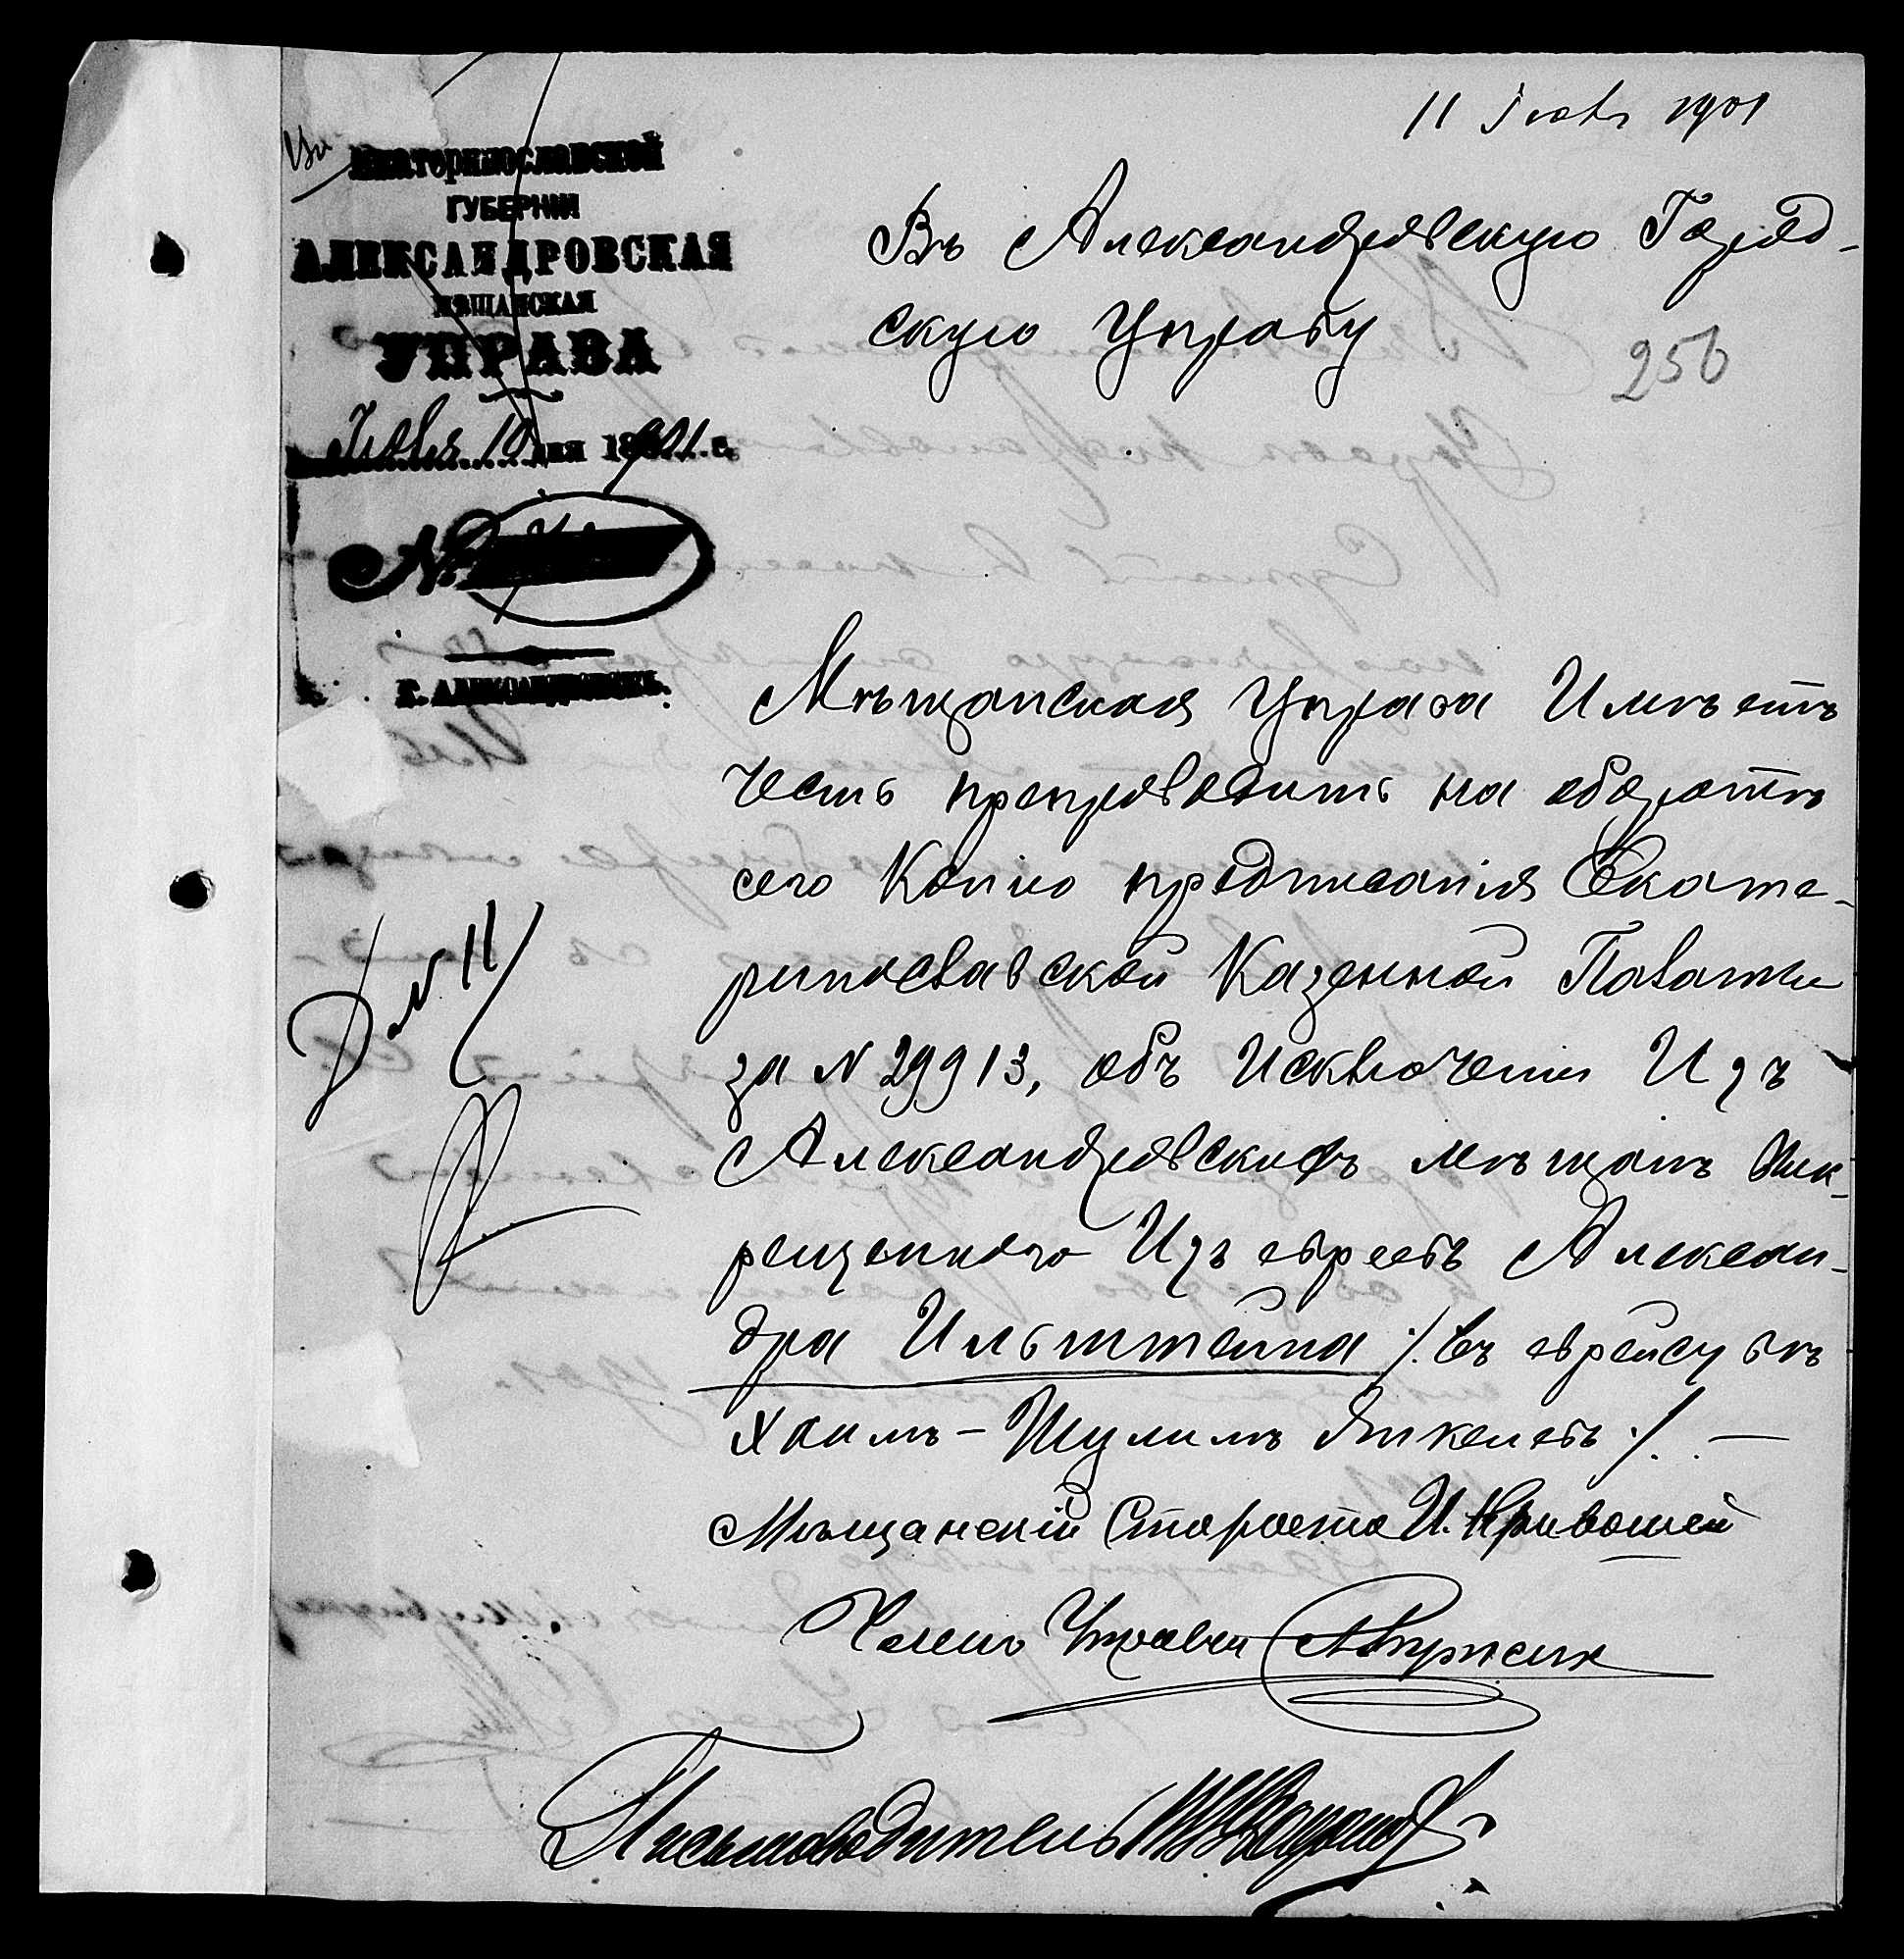 11 Іюля 1901
Екатеринославской
ГУБЕРНІИ
АЛЕКСАНДРОВСКАЯ
МѢЩАНСКАЯ
УПРАВА
Іюля 10 дня 1901 г.
№
г. Александровскъ.
Въ Александровскую Город-
скую Управу
256
Мѣщанская Управа Имѣетъ
честь препроводить на оборотѣ
сего Копію предписанія Екате-
ринославской Казенной Палаты
за № 29913, объ Исключеніи Изъ
Александровскихъ мѣщанъ вык-
рещеннаго Изъ евреевъ Алексан-
дра Ильштейна /. въ еврействѣ
Хаимъ-Шулимъ Янкелевъ ./. —
Мѣщанскій Староста И. Кривошей
Членъ Управы
Письмоводитель
№ 11